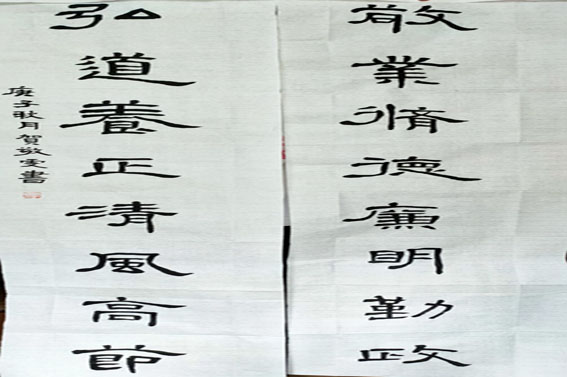 敬業脩德廉明勤政
弘道養正清風高節
庚子秋月賀敬雯書